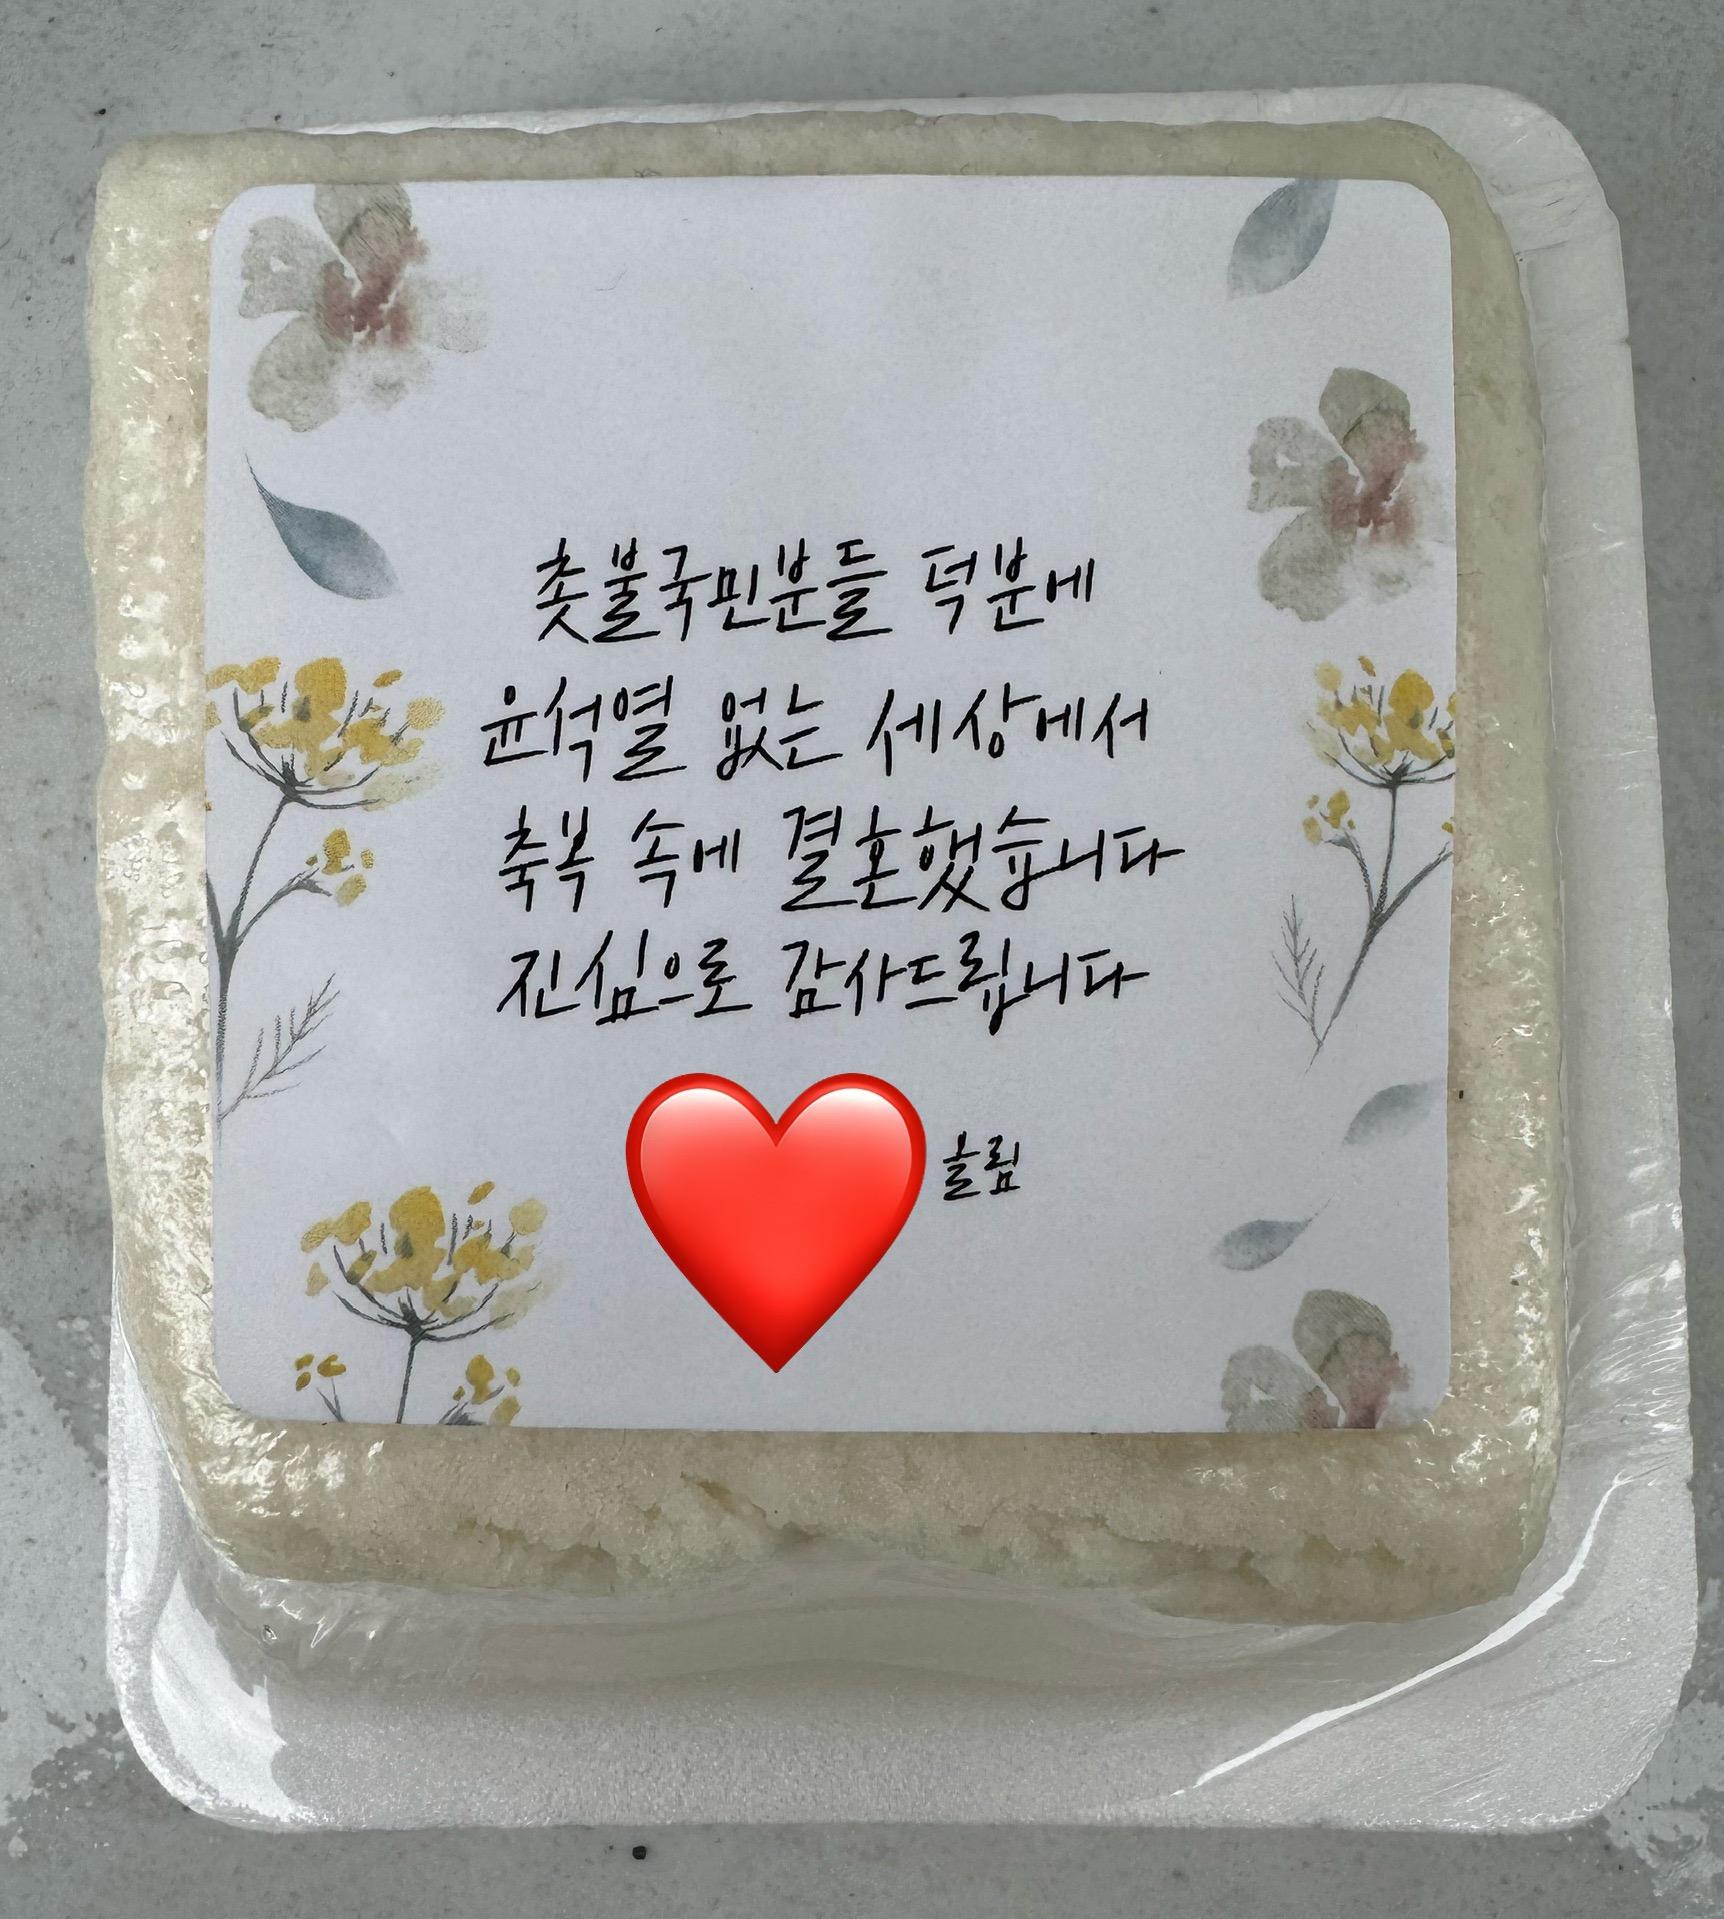 촛불국민분들 덕분에
윤석열 없는 세상에서
축복 속에 결혼했습니다
진심으로 감사드립니다
올림